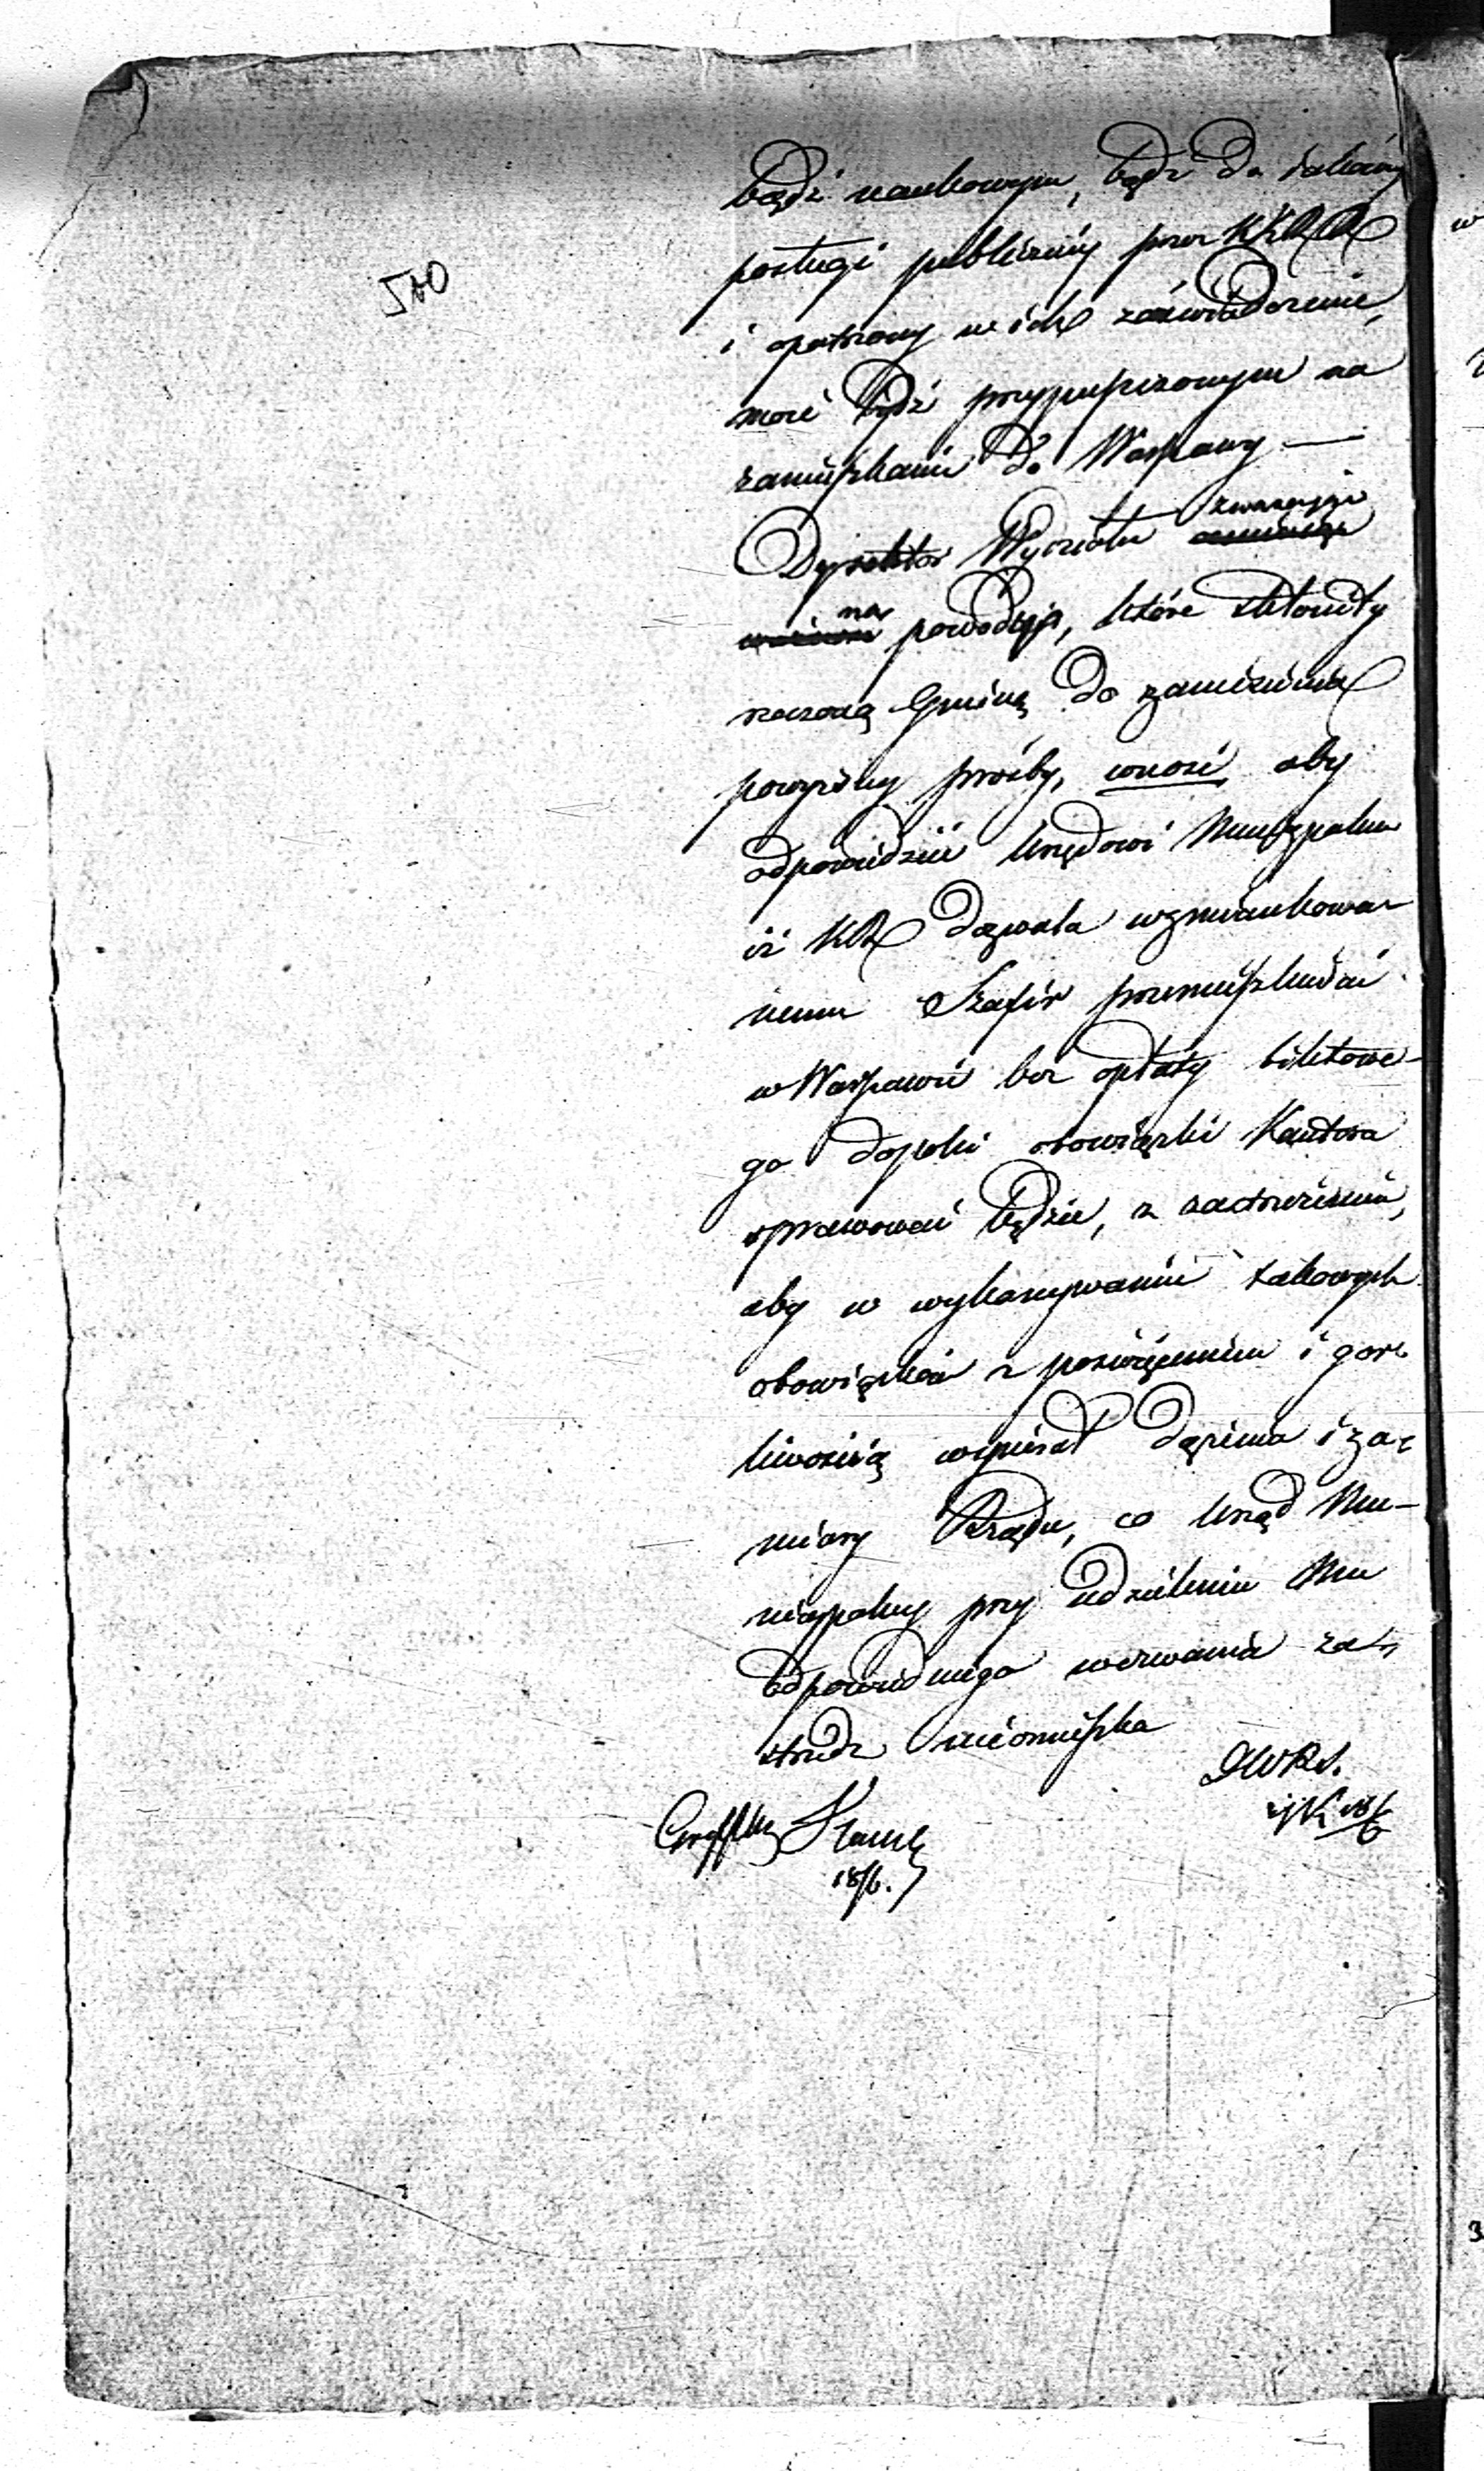 540
bądź naukowym, bądź do jakiéj
posługi publicznéj przez KKRR
i opatrzony w ich zaświadczenie,
może bydź przypuszczonym na
zamieszkanie do Warszawy —
Dyrektor Wydziału zważając
na powody, które skłoniły
rzeczoną Gminę do zaniesienia
powyższéj prośby, wnosi aby
odpowiedzieć Urzędowi Municypalnemu
iż KR dozwala wzmiankowa-
nemu Szafir przemieszkiwać
w Warszawie bez opłaty biletowe-
go dopóki obowiązki Kantora
sprawować będzie, z zastrzeżeniem,
aby w wykonywaniu takowych
obowiązków z poświęceniem i gor-
liwością wspierał dążenia i za-
miary Rządu, co Urząd Mu-
nicypalny przy udzieleniu Mu
odpowiedniego wezwania za-
strzedz nieomieszka
DWRS.
18/6
18/6.